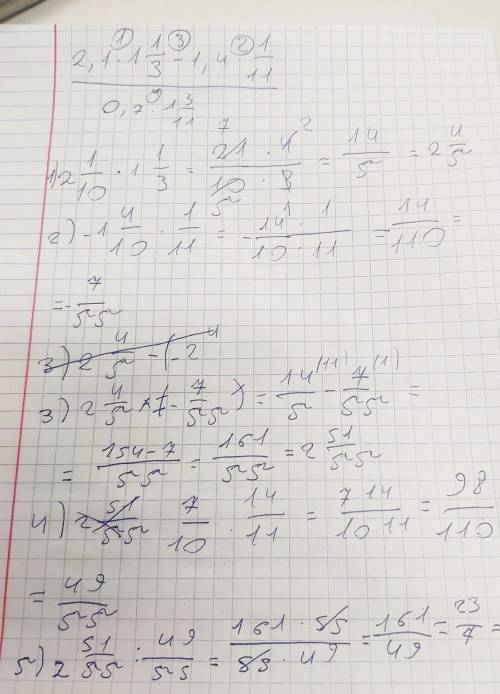 2,1 · 1 1/3 - 1,4 · 1/11
0,7 · 1 3/11
1) 2 1/10 · 1 1/3 = 21 · 4 / 10 · 3 = 14/5 = 2 4/5
2) -1 4/10 · 1/11 = - 14 · 1 / 10 · 11 = 14/110 =
= - 7/55
3) 2 4/5 - (-2 4
3) 2 4/5 + (- 7/55) = 14/5 - 7/55 =
= 154-7/55 = 161/55 = 2 51/55
4) 2 51/55 7/10 · 14/11 = 7 14 / 10 · 11 = 98/110
= 49/55
5) 2 51/55 : 49/55 = 161 · 55 / 55 · 49 = 161/49 = 23/7 =